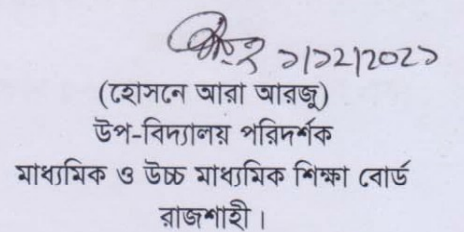 ১/১২/২০২১
(হোসনে আরা আরজু)
উপ-বিদ্যালয় পরিদর্শক
মাধ্যমিক ও উচ্চ মাধ্যমিক শিক্ষা বোর্ড
রাজশাহী।